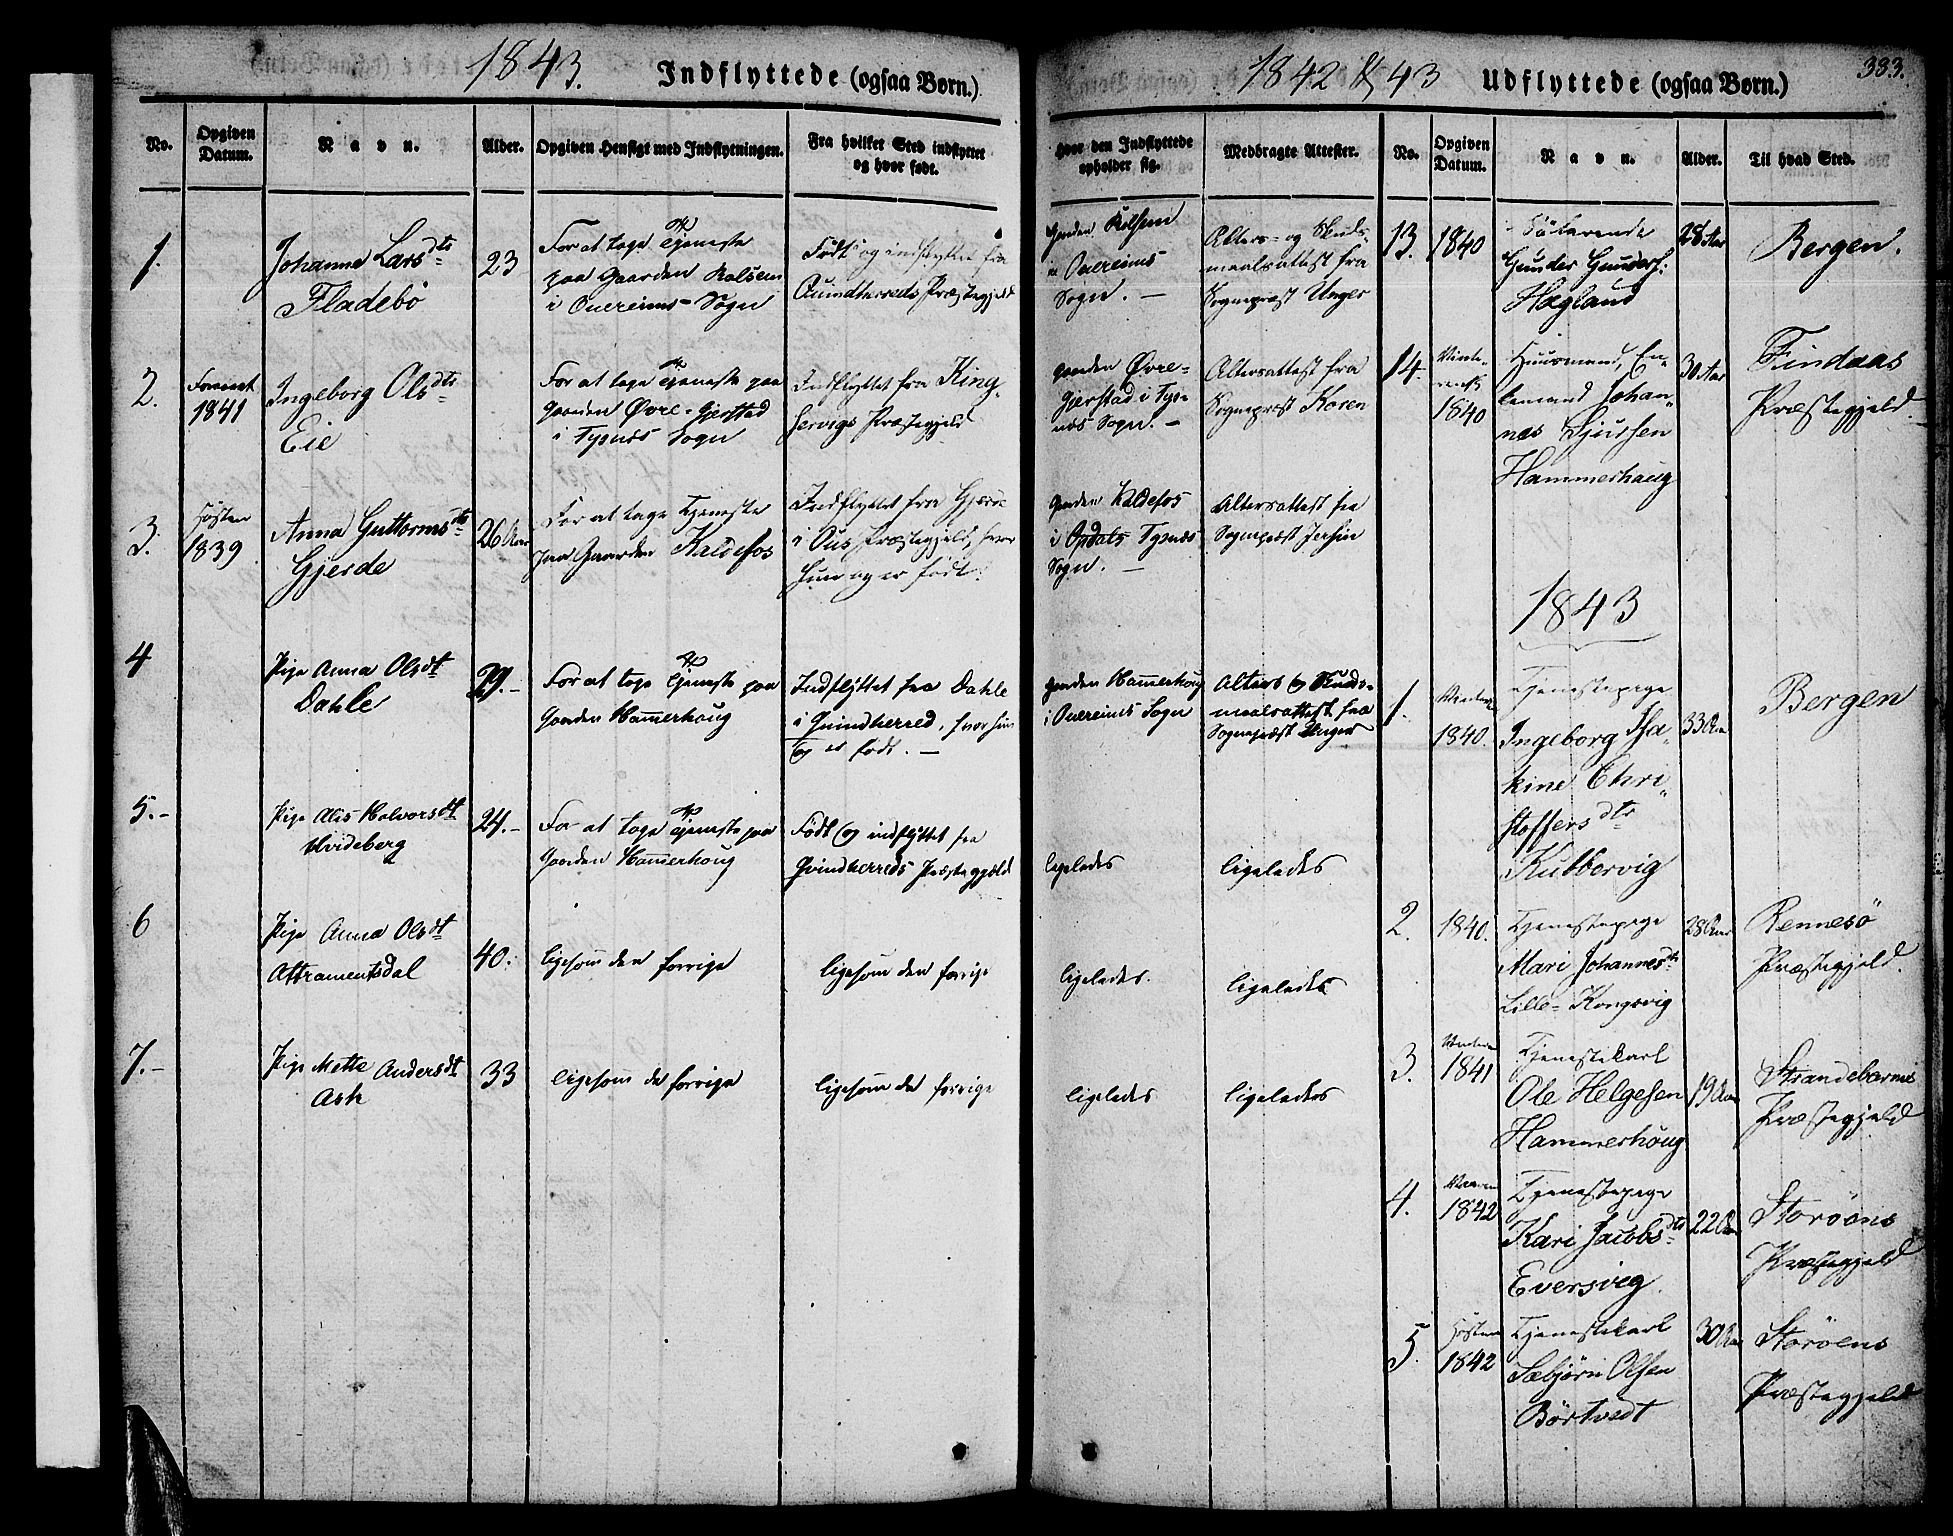 1843.
Indflyttede (ogsaa Børn.)
No.
Opgiven Datum.
Navn.
Alder.
Opgiven Hensigt med Indflytningen.
Fra hvilket Sted indflyttet og hvor født.
1.
Johanna Larsdtr
Fladebö
23
For at tage Tjeneste
paa Gaarden Rolsem
i Onereims Sogn
Født og indflyttet fra
Qvindherreds Præstegjeld
2.
1841
Ingeborg Olsdtr
Eie
For at tage Tjeneste paa
Gaarden Øvre-Gjerstad
i Tysnes Sogn
Indflyttet fra King-
servigs Præstegjeld
3.
Høsten
1839
Anna Guttormsdtr
Gjerde
26 Aar
For at tage Tjeneste
paa Gaarden Kaldefos
Indflyttet fra Gjerde
i Ous Præstegjeld, hvor
hun og er født.
4
Pige Anna Olsdt
Dahle
29.-
For at tage Tjeneste paa
Gaarden Hammerhoug
Indflyttet fra Dahle
i Qvindherred, hvor hun
og er født. -
5.-
Pige Alis Halvorsdt
Hvideberg
24.-
For at tage Tjeneste paa
Gaarden Hammerhoug
Født og indflyttet fra
Qvindherreds Præstegjeld
6
Pige Anna Olsdt
Attramentsdal
40.
ligesom den forrige
ligesom den forrige
7.-
Pige Mette Andersdt
Ask
33
ligesom de forrige
ligesom de forrige
1842 & 43
Udflyttede (ogsaa Børn.)
383.
Hvor den Indflyttede opholder sig.
Medbragte Attester.
No.
Opgiven Datum.
Navn.
Alder.
Til hvad Sted.
Gaarden Rolsem
i Onereims
Sogn. -
Alters- og Skuds-
maalsattest fra
Sognepræst Unger
13.
1840
Gunder Gunders:
Hægland
28 Aar
Bergen.
Gaarden Øvre-
Gjerstad i Tys-
nes Sogn. -
Altersattest fra
Sognepræst Koren
14.
1840
Huusmand, En-
kemand Johan-
nes Sjursen
Hammerhaug
30 Aar
Findaas
Præstegjeld
Gaarden Kaldefos
i Opdals Tysnes
Sogn. -
Altersattest fra
Sognepræst
1843
Gaarden Hammerhoug
i Onereims Sogn
Alters og Skuds-
maalsattest fra
Sognepræst Unger
1.
1840.
Tjenestepige
Ingeborg Isa-
kine Chri-
stoffersdtr
Kubbervig
33 Aar
Bergen
ligeledes
ligeledes
2.
1840.
Tjenestepige
Mari Johannesdtr
Lille-Kongsvig
28 Aar
Rennesö
Præstegjeld.
ligeledes.
ligeledes
3.
1841
Tjenestekarl
Ole Helgesen
Hammerhoug
19 Aar
Strandebarms
Præstegjeld
ligeledes
ligeledes
4.
1842
Tjenestepige
Kari Jacobsdtr
Eversvig
22 Aar
Storöens
Præstegjeld
5.
Høsten
1842
Tjenestekarl
Sæbjörn Olsen
Börtvedt
30 Aar
Storöens
Præstegjeld